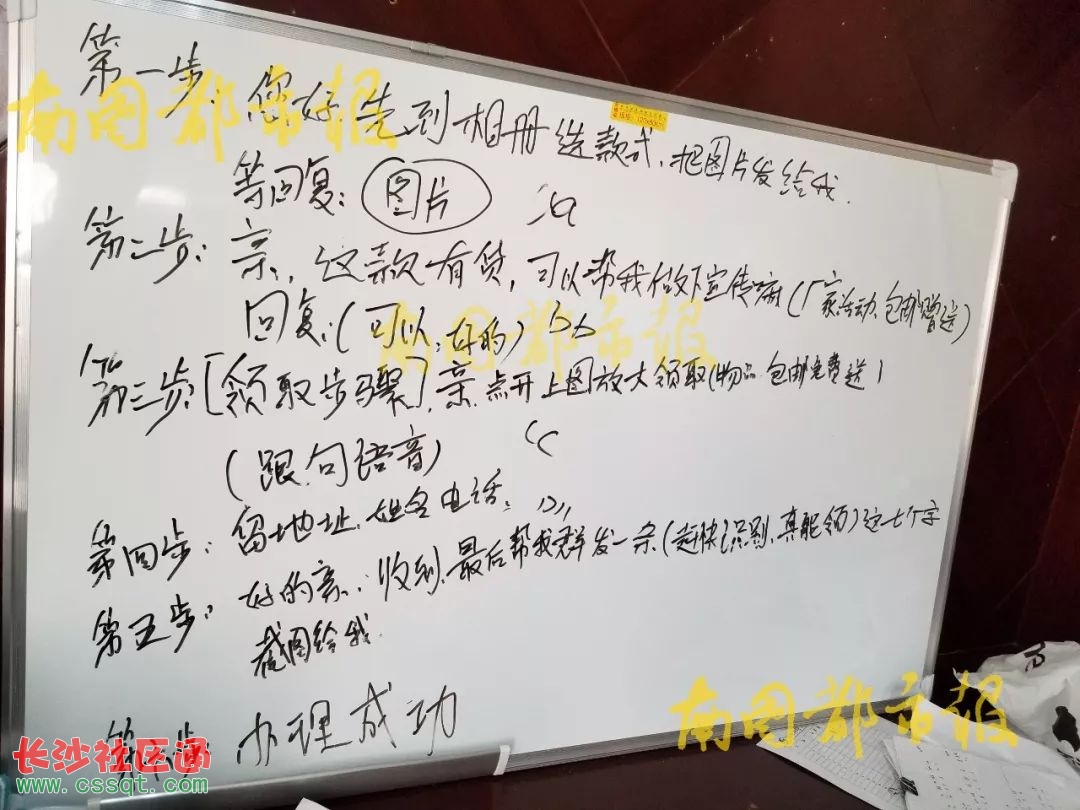 第一步、您好先到相册选款式,把图片发给我.
等回复:(图片)
第二步:亲,这款有货,可以帮我做下宣传嘛(厂家活动,包邮赠送)
回复:(可以,好的)
第三步[领取步骤],亲,点开上图放大领取(物品包邮免费送)
(跟句语音)
第四步:留地址,姓名电话,
第五步:好的亲:收到,最后帮我群发一条(赶快识别,真能领)这七个字
截图给我
第六步:办理成功
南国都市报
南国都市报
南国都市报
长沙社区通
www.cssqt.com